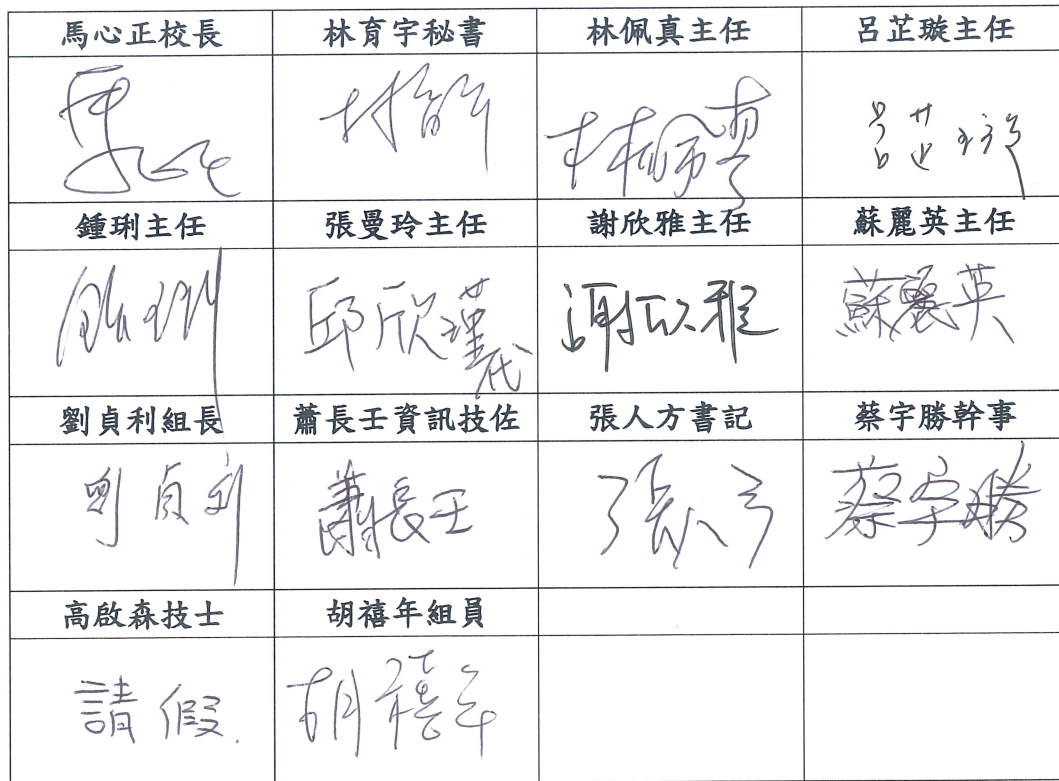 馬心正校長 林育宇秘書 林佩真主任 呂芷璇主任
馬心正 林育宇 林佩真 呂芷璇
鍾琍主任 張曼玲主任 謝欣雅主任 蘇麗英主任
鍾琍 邱欣瑾代 謝欣雅 蘇麗英
劉貞利組長 蕭長壬資訊技佐 張人方書記 蔡宇勝幹事
劉貞利 蕭長壬 張人方 蔡宇勝
高啟森技士 胡禧年組員
請假. 胡禧年